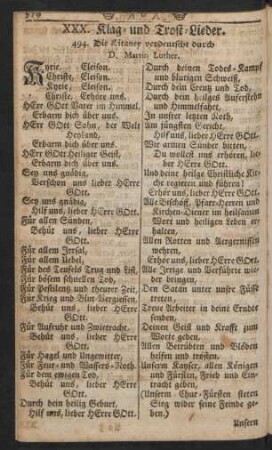 XXX. Klag- und Trost-Lieder.
494. Die Litaney verdeutscht durch
D. Martin Luther.
Kyrie, Eleison.
Christe, Eleison.
Kyrie, Eleison.
Christe, Erhöre uns.
HErr GOtt Vater im Himmel,
Erbarm dich über uns.
HErr GOtt Sohn, der Welt
Heyland,
Erbarm dich über uns.
HErr GOtt Heiliger Geist,
Erbarm dich über uns.
Sey uns gnädig,
Verschon uns, lieber HErre
GOtt.
Sey uns gnädig,
Hilf uns, lieber HErre GOtt.
Für allen Sünden,
Behüt uns, lieber HErre
GOtt.
Für allen Irrsal,
Für allem Uebel,
Für des Teufels Trug und List,
Für bösem schnellen Tod,
Für Pestilenz und theurer Zeit,
Für Krieg und Blut-Vergiessen,
Behüt uns, lieber HErre
GOtt.
Für Aufruhr und Zwietracht,
Behüt uns, lieber HErre
GOtt.
Für Hagel und Ungewitter,
Für Feur- und Wassers-Noth,
Für dem ewigen Tod,
Behüt uns, lieber HErre
GOtt.
Durch dein heilig Geburt,
Hilf uns, lieber HErre GOtt.
Durch deinen Todes-Kampf
und blutigen Schweiß,
Durch dein Creutz und Tod,
Durch dein heilges Auferstehn
und Himmelfahrt,
In unser letzten Noth,
Am jüngsten Gericht,
Hilf uns, lieber HErre GOtt.
Wir armen Sünder bitten,
Du wollest uns erhören, lie-
ber HErre GOtt.
Und deine heilge Christliche Kir-
che regieren und führen;
Erhör uns, lieber HErre GOtt.
Alle Bischöff, Pfarr-Herren und
Kirchen-Diener im heilsamen
Wort und heiligen Leben be-
halten,
Allen Rotten und Aergernissen
wehren,
Erhör uns, lieber HErre GOtt.
Alle Irrige und Verführte wie-
der bringen,
Den Satan unter unsre Füsse
treten,
Treue Arbeiter in deine Erndte
senden,
Deinen Geist und Krafft zum
Worte geben,
Allen Betrübten und Blöden
helfen und trösten,
Unserm Kayser, allen Königen
und Fürsten, Fried und Ein-
tracht geben,
(Unserm Chur-Fürsten steten
Sieg wider seine Feinde ge-
ben.)
Unsern